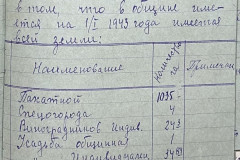 в том, что в общине име-
ется на 1/I 1943 года имеется
всей земли:
Наименование Количество га Примечан
Пахатной 1035 -
Спецогорода 4
Виноградников индив. 243
Усадьба общинная 1
Индивидуальн 34